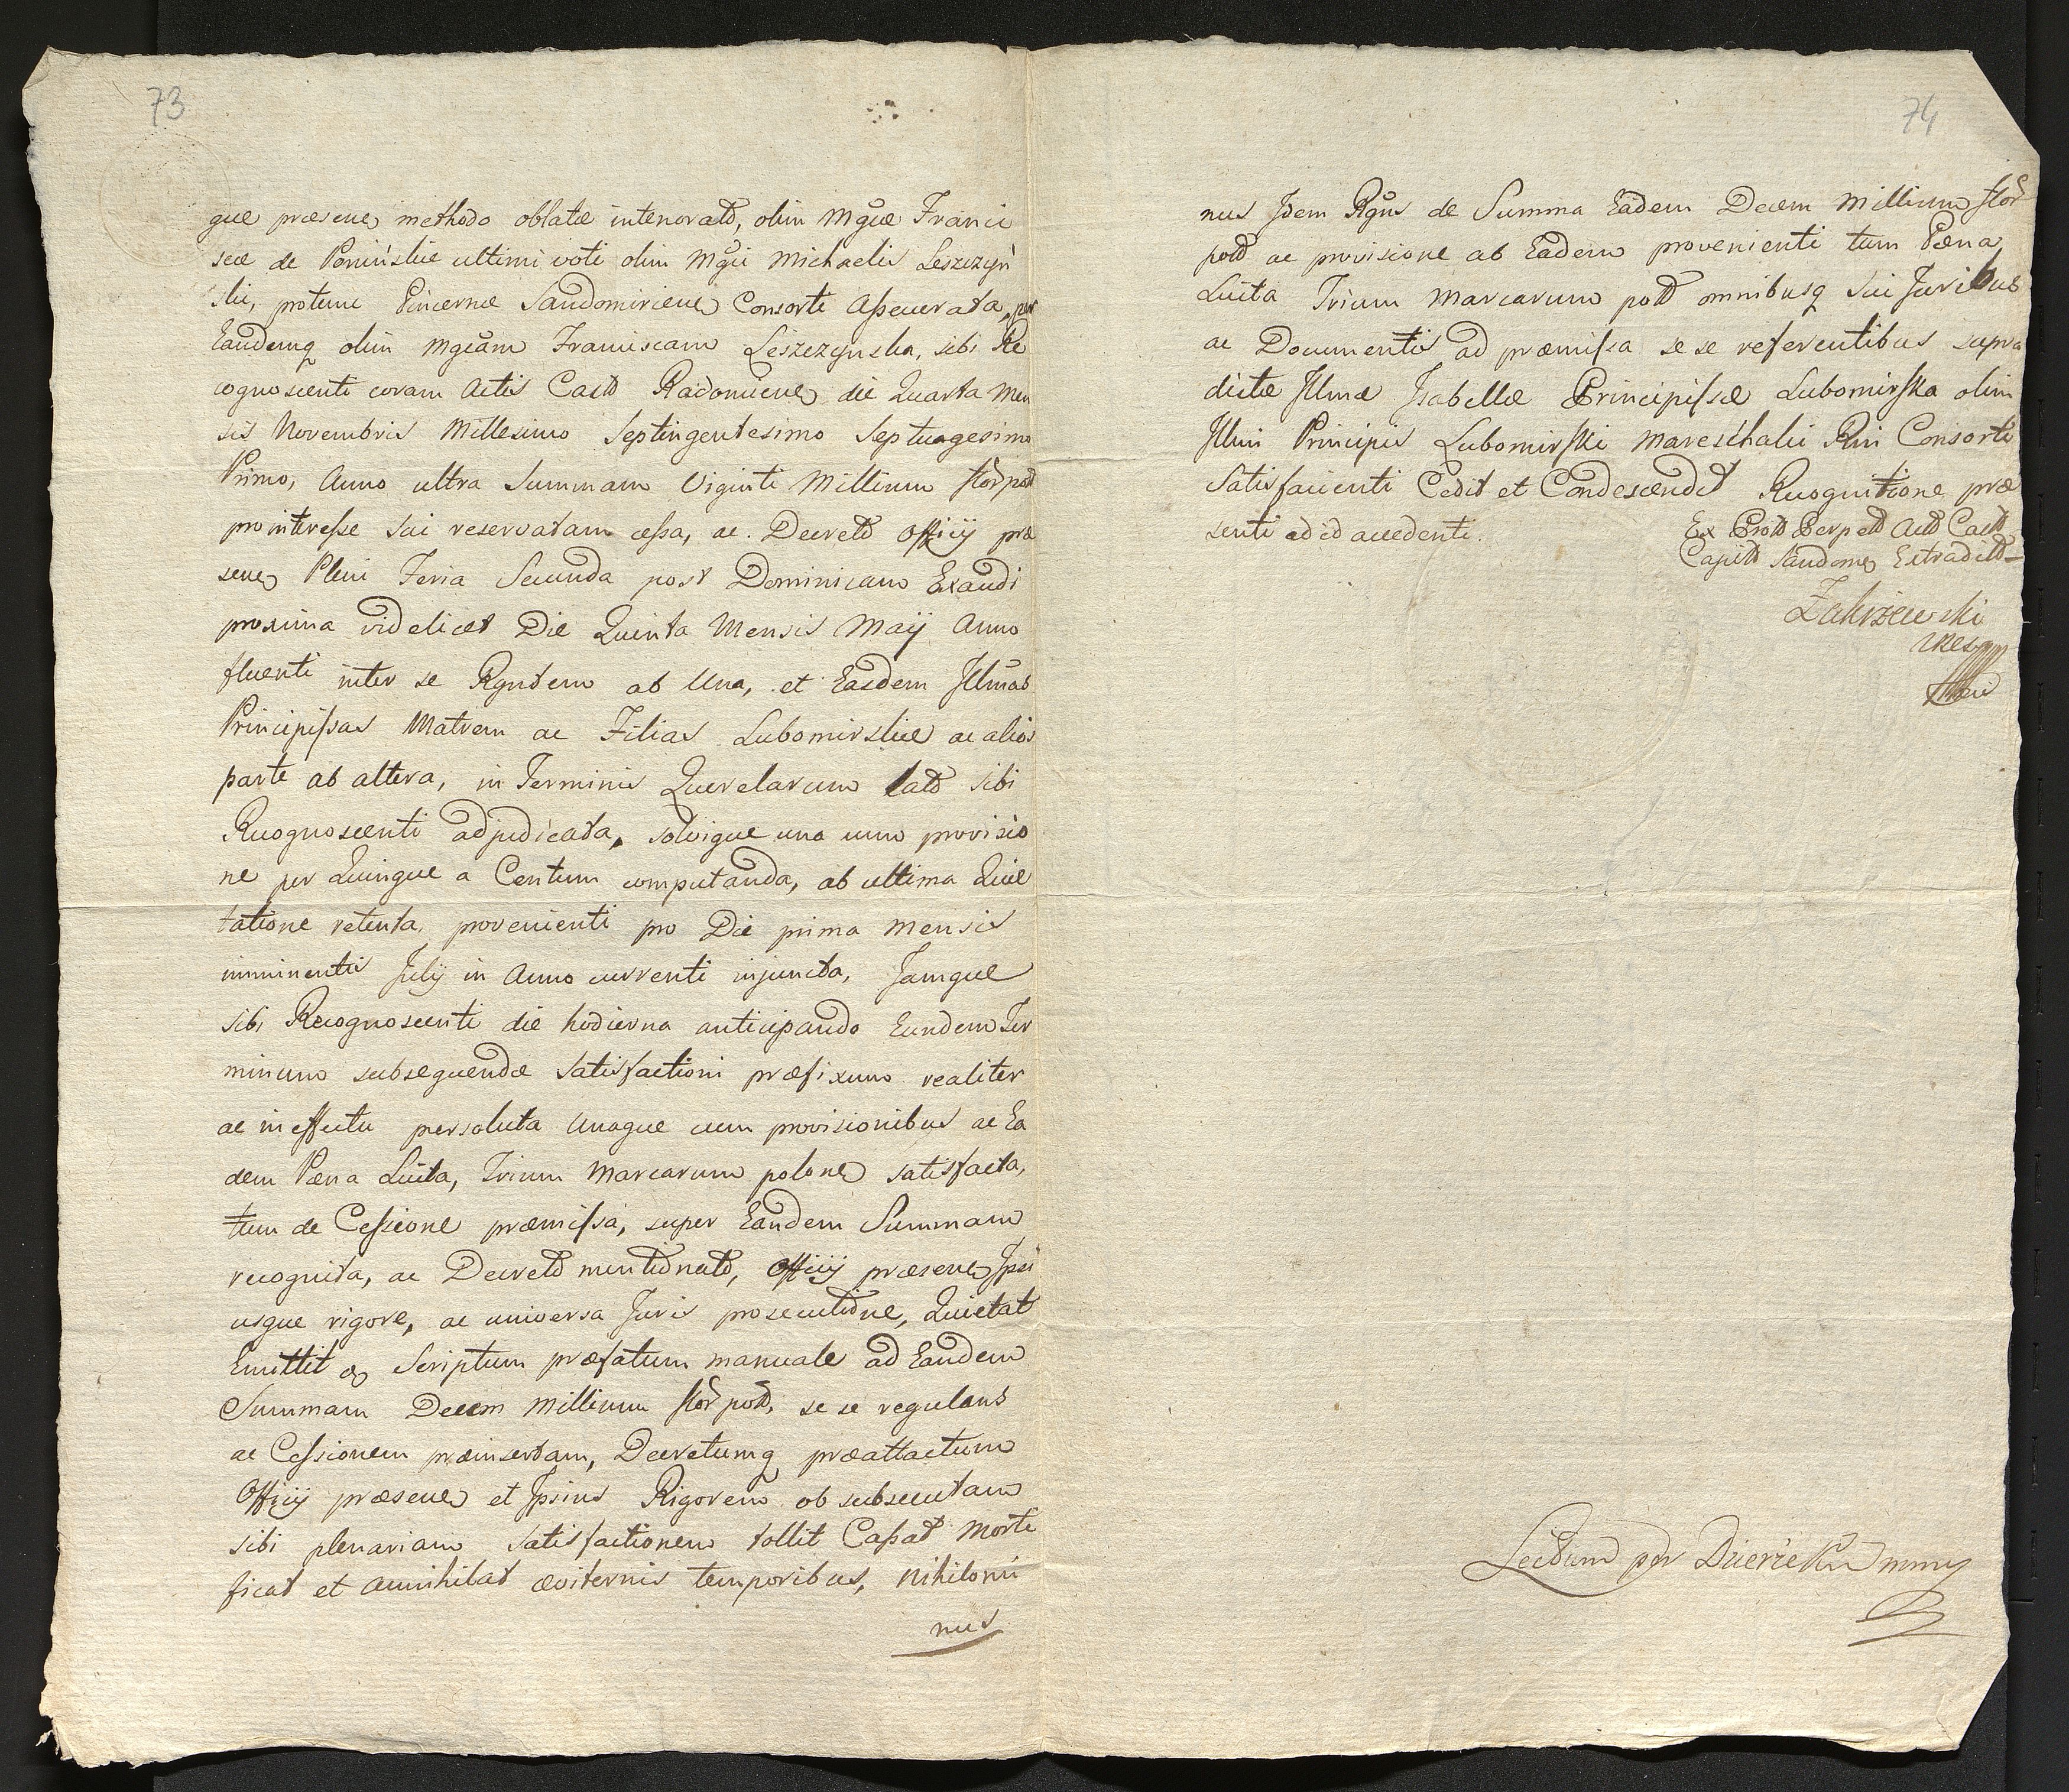 73
que præsene methodo oblatæ intenorato, olim Mgcæ Franci
scæ de Ponińskie ultimi voti olim Mgci Michaelis Leszczyń
ski, protunc Pincernæ Sandomiriene Consorte Asseverata, per
Eandemq olim Mgcam Franciscam Leszczynska, sibi Re
cognoscenti coram Actis Castr Radomiene die Quarta Men
sis Novembris Millesimo Septingentesimo Septuagesimo
Primo, Anno ultra Summam Viginti Millium flor pol
pro interesse sui reservatam cessa, ac Decreto Officij præ
sene Pleni Feria Secunda post Dominicam Exaudi
proxima videlicet Die Quinta Mensis Maij Anno
fluenti inter se Rgntem ab Una, et Easdem Illmas
Principissas Matrem ac Filias Lubomirskie ac alios
parte ab altera, in Terminis Querelarum lato sibi
Recognoscenti adjudicata, solvique una cum provisio
ne per Quinque a Centum computanda, ab ultima Quie
tatione retenta, provenienti pro Die prima Mensis
imminentis Julij in Anno currenti injuncta, Jamque
sibi Recognoscenti die hodierna anticipando Eundem Ter
minum subsequendæ Satisfactioni præfixum realiter
ac in effectu persoluta Unaque cum provisionibus ac Ea
dem Pæna Luita, Trium Marcarum polone satisfacta,
tum de Cessione præmissa, super Eandem Summam
recognita, ac Decreto mentionato, Officij præsene Ipsi
usque rigore, ac universa Juris prosecutione, Quietat
Emittit q Scriptum præfatum manuale ad Eandem
Summam Decem Millium flor pol, se se regulans
ac Cessionem præinsertam, Decretumq præattactum
Officij præsene et Ipsius Rigorem ob subsecutam
sibi plenariam Satisfactionem tollit Cassat Morti
ficat et annihilat æviternis temporibus, nihilomi
nus
74
nus Idem Rgns de Summa Eadem Decem Millium flor
pol ac provisione ab Eadem provenienti tum Pæna
Luita Trium Marcarum pol omnibusq Sui Juribus
ac Documentis ad præmissa se se referentibus supra
dictæ Illmæ Isabellæ Principissæ Lubomirska olim
Illmi Principis Lubomirski Mareschalci Rni Consorti
Satisfacienti Cedit et Condescendit Recognitione præ
senti ad id accedenti.
Ex Proto Perpet Acto Castr
Capit Sandome Extradit
Zakrzewski
Lectum per Dzierzek